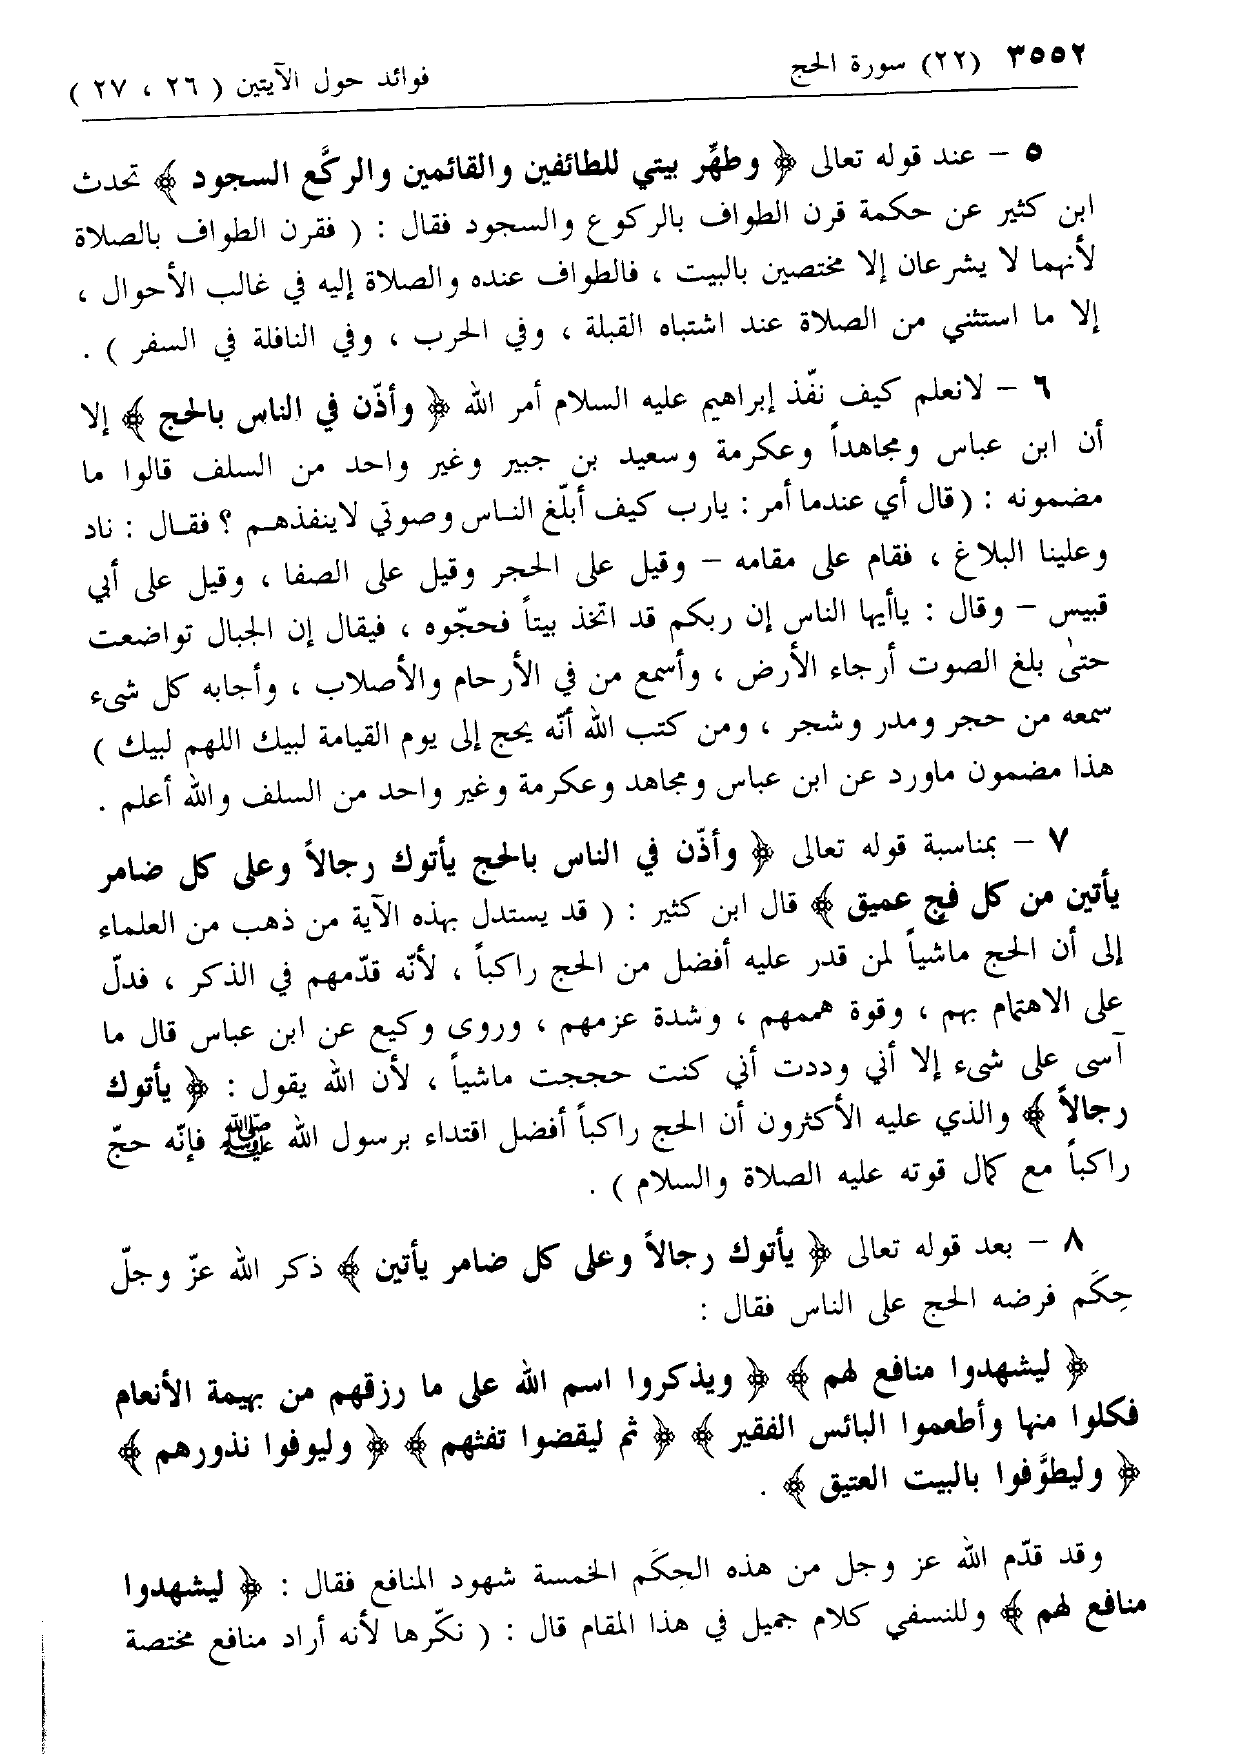 ٣٥٥٢ (٢٢) سورة الحج فوائد حول الآيتين ( ٢٦ ، ٢٧ )
٥ – عند قوله تعالى ﴿ وطهِّر بيتي للطائفين والقائمين والركَّع السجود ﴾ تحدث
ابن كثير عن حكمة قرن الطواف بالركوع والسجود فقال : ( فقرن الطواف بالصلاة
لأنهما لا يشرعان إلا مختصين بالبيت ، فالطواف عنده والصلاة إليه في غالب الأحوال ،
إلا ما استثني من الصلاة عند اشتباه القبلة ، وفي الحرب ، وفي النافلة في السفر ) .
٦ – لانعلم كيف نفّذ إبراهيم عليه السلام أمر الله ﴿ وأذّن في الناس بالحج ﴾ إلا
أن ابن عباس ومجاهداً وعكرمة وسعيد بن جبير وغير واحد من السلف قالوا ما
مضمونه : ( قال أي عندما أمر : يارب كيف أبلّغ الناس وصوتي لاينفذهم ؟ فقال : ناد
وعلينا البلاغ ، فقام على مقامه – وقيل على الحجر وقيل على الصفا ، وقيل على أبي
قبيس – وقال : ياأيها الناس إن ربكم قد اتخذ بيتاً فحجّوه ، فيقال إن الجبال تواضعت
حتىٰ بلغ الصوت أرجاء الأرض ، وأسمع من في الأرحام والأصلاب ، وأجابه كل شىء
سمعه من حجر ومدر وشجر ، ومن كتب الله أنّه يحج إلى يوم القيامة لبيك اللهم لبيك )
هذا مضمون ماورد عن ابن عباس ومجاهد وعكرمة وغير واحد من السلف والله أعلم .
٧ – بمناسبة قوله تعالى ﴿ وأذّن في الناس بالحج يأتوك رجالاً وعلى كل ضامر
يأتين من كل فج عميق ﴾ قال ابن كثير : ( قد يستدل بهذه الآية من ذهب من العلماء
إلى أن الحج ماشياً لمن قدر عليه أفضل من الحج راكباً ، لأنّه قدّمهم في الذكر ، فدلّ
على الاهتمام بهم ، وقوة هممهم ، وشدة عزمهم ، وروى وكيع عن ابن عباس قال ما
آسى على شىء إلا أني وددت أني كنت حججت ماشياً ، لأن الله يقول : ﴿ يأتوك
رجالاً ﴾ والذي عليه الأكثرون أن الحج راكباً أفضل اقتداء برسول الله ﷺ فإنّه حجّ
راكباً مع كمال قوته عليه الصلاة والسلام ) .
٨ – بعد قوله تعالى ﴿ يأتوك رجالاً وعلى كل ضامر يأتين ﴾ ذكر الله عزّ وجلّ
حِكَم فرضه الحج على الناس فقال :
﴿ ليشهدوا منافع لهم ﴾ ﴿ ويذكروا اسم الله على ما رزقهم من بهيمة الأنعام
فكلوا منها وأطعموا البائس الفقير ﴾ ﴿ ثم ليقضوا تفثهم ﴾ ﴿ وليوفوا نذورهم ﴾
﴿ وليطوَّفوا بالبيت العتيق ﴾ .
وقد قدّم الله عز وجل من هذه الحِكَم الخمسة شهود المنافع فقال : ﴿ ليشهدوا
منافع لهم ﴾ وللنسفي كلام جميل في هذا المقام قال : ( نكّرها لأنه أراد منافع مختصة